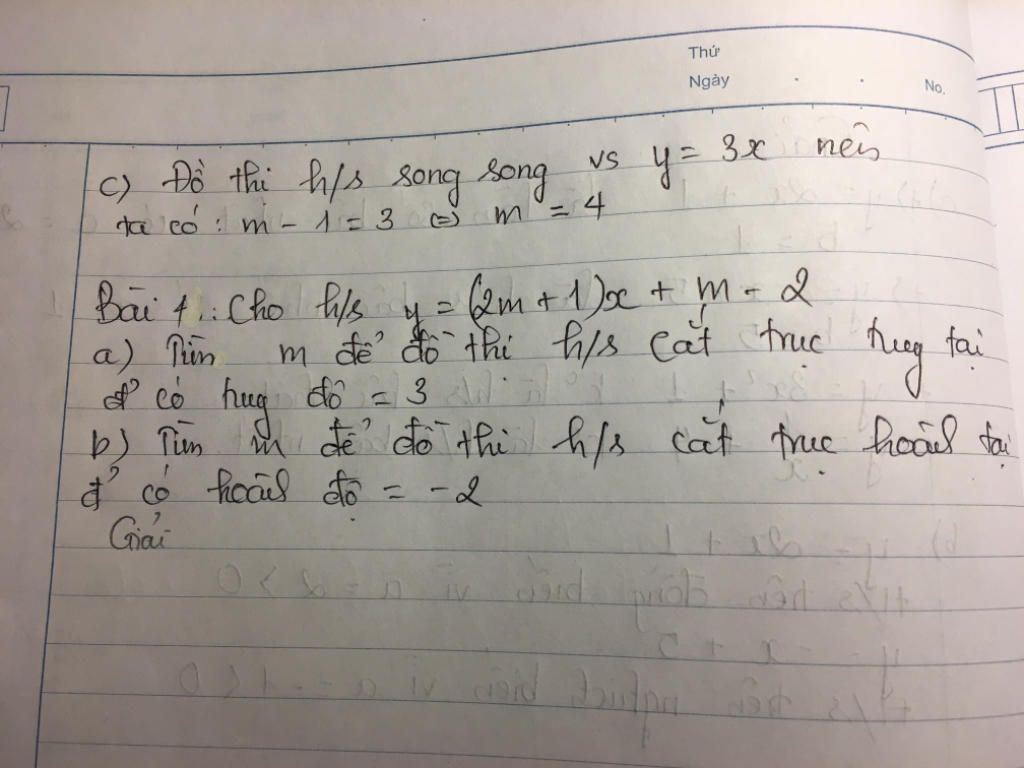 Thứ
Ngày . . No.
c) Đồ thi h/s song song vs y = 3x nên
ta có : m - 1 = 3 ⇔ m = 4
Bài 1 : Cho h/s y = (2m + 1)x + m - 2
a) Tìm m để đồ thi h/s cắt trục tug tại
đ' có tug độ = 3
b) Tìm m để đồ thi h/s cắt trục hoàh tại
đ' có hoàh độ = -2
Giải